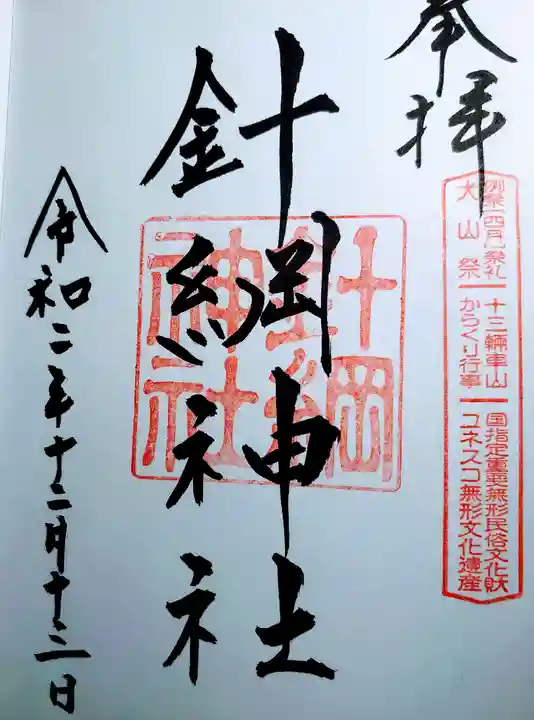 奉拝
例祭(四月)祭礼 十三輛車山 国指定重要無形民俗文化財
犬山祭 からくり行事 ユネスコ無形文化遺産
針綱神社
針綱神社
令和二年十二月十三日